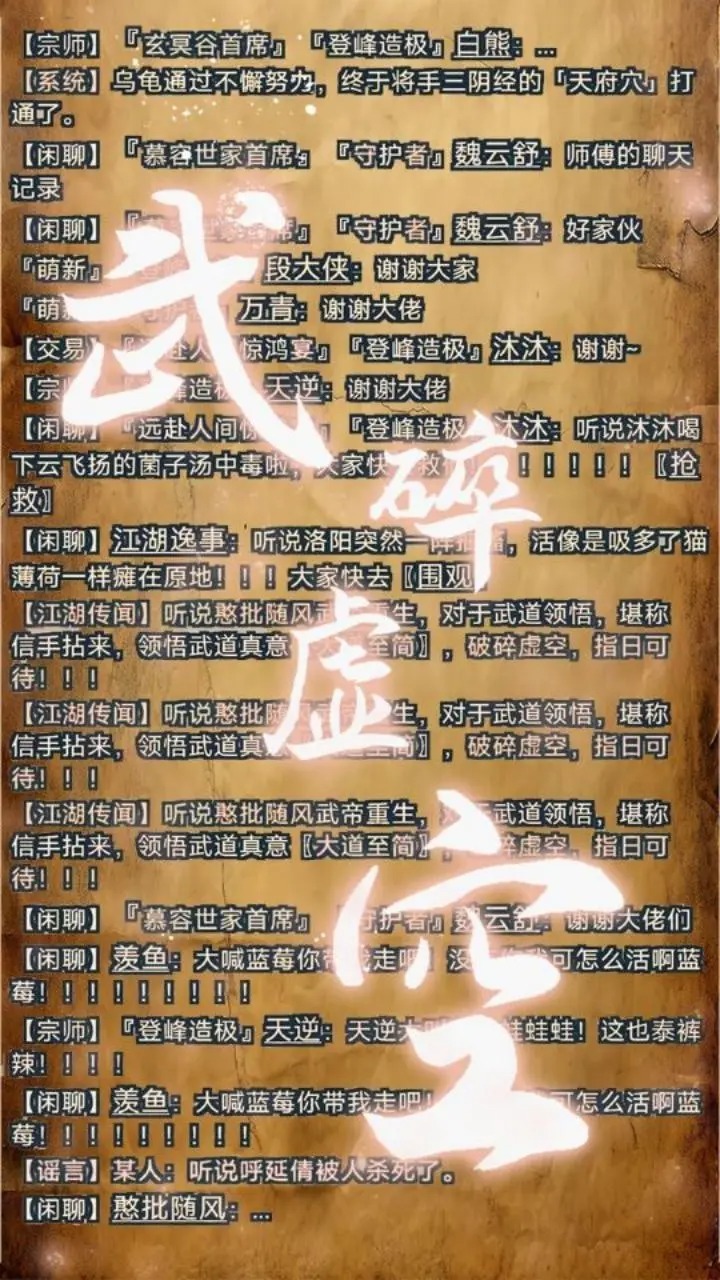 【宗师】『玄冥谷首席』『登峰造极』白熊：...
【系统】乌龟通过不懈努力，终于将手三阴经的「天府穴」打
通了。
【闲聊】『慕容世家首席』『守护者』魏云舒：师傅的聊天
记录
【闲聊】『席』『守护者』魏云舒：好家伙
『萌新』段大侠：谢谢大家
『萌 万青：谢谢大佬
【交易】赴人 惊鸿宴』『登峰造极』沐沐：谢谢~
【宗 峰造极 天逆：谢谢大佬
【闲 『远赴人间惊 』『登峰造极 沐沐：听说沐沐喝
下云飞扬的菌子汤中毒啦，大家快 救 ！！！！！！〖抢
救〗
【闲聊】江湖逸事：听说洛阳突然一阵 ，活像是吸多了猫
薄荷一样瘫在原地！！！大家快去〖围观
【江湖传闻】听说憨批随风武帝重生，对于武道领悟，堪称
信手拈来，领悟武道真意 大道至简〗，破碎虚空，指日可
待！！！
【江湖传闻】听说憨批随风武帝重生，对于武道领悟，堪称
信手拈来，领悟武道真意 大道至简〗，破碎虚空，指日可
待！！！
【江湖传闻】听说憨批随风武帝重生，对于武道领悟，堪称
信手拈来，领悟武道真意〖大道至简〗，破碎虚空，指日可
待！！！
【闲聊】『慕容世家首席』『守护者』魏云舒：谢谢大佬们
【闲聊】羡鱼：大喊蓝莓你带我走吧！没 你我可怎么活啊蓝
莓！！！！！！！！！
【宗师】『登峰造极』天逆：天逆大 蛙蛙蛙！这也泰裤
辣！！！！
【闲聊】羡鱼：大喊蓝莓你带我走吧！ 可怎么活啊蓝
莓！！！！！！！！！
【谣言】某人：听说呼延倩被人杀死了。
【闲聊】憨批随风：...
武
碎
虚
空